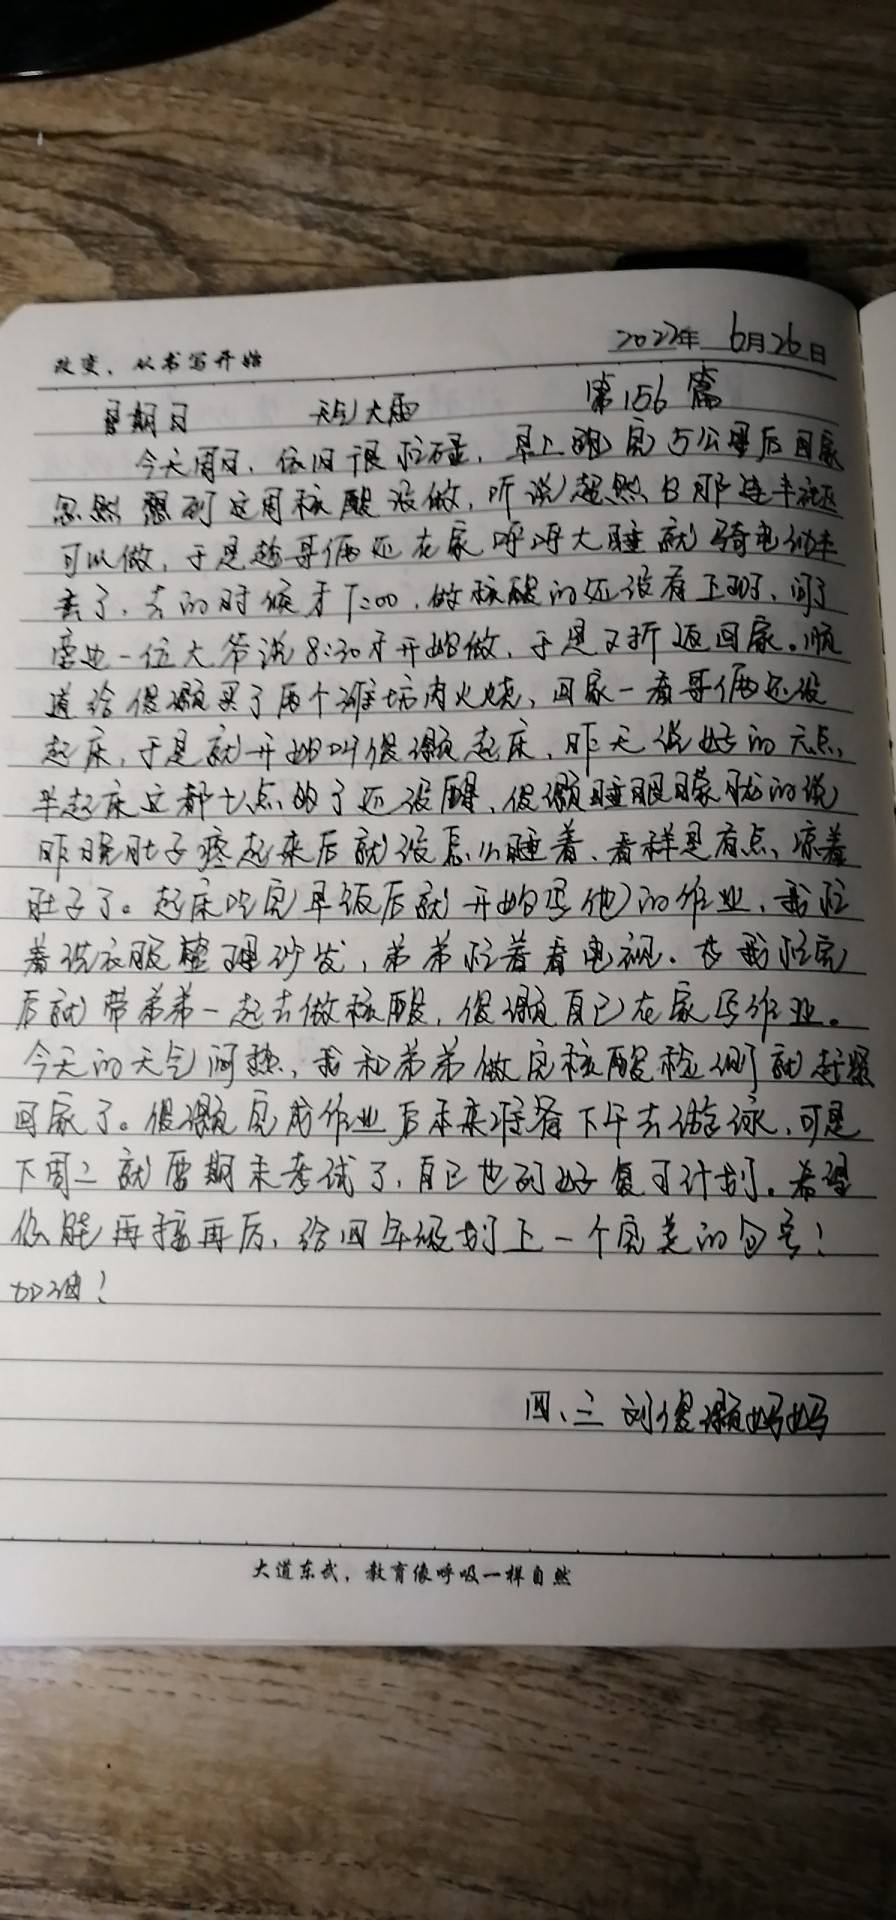 改变，从书写开始
2022年 6月26日
星期日 天气大雨 第156篇
今天周日，依旧很忙碌，早上跑完5公里后回家
忽然想到这周核酸没做，听说超然 那边半
可以做，于是趁哥俩还在家呼呼大睡就骑电动车
去了，去的时候才7:00，做核酸的还没有上班，问了
旁边一位大爷说8:30才开始做，于是又折返回家。顺
道给俊灏买了两个潍坊肉火烧，回家一看哥俩还没
起床，于是就开始叫俊灏起床，昨天说好的六点
半起床这都七点的了还没醒，俊灏睡眼朦胧的说
昨晚肚子疼起来后就没怎么睡着，看样是有点凉着
肚子了。起床吃完早饭后就开始写他的作业，我忙
着洗衣服整理沙发，弟弟忙着看电视。等我忙完
后就带弟弟一起去做核酸，俊灏自己在家写作业。
今天的天气闷热，我和弟弟做完核酸检测就赶紧
回家了。俊灏完成作业后本来准备下午去游泳，可是
下周二就要期末考试了，自己也列好复习计划。希望
你能再接再厉，给四年级划上一个完美的句号！
加油！
四、三 刘俊灏妈妈
大道东武，教育像呼吸一样自然